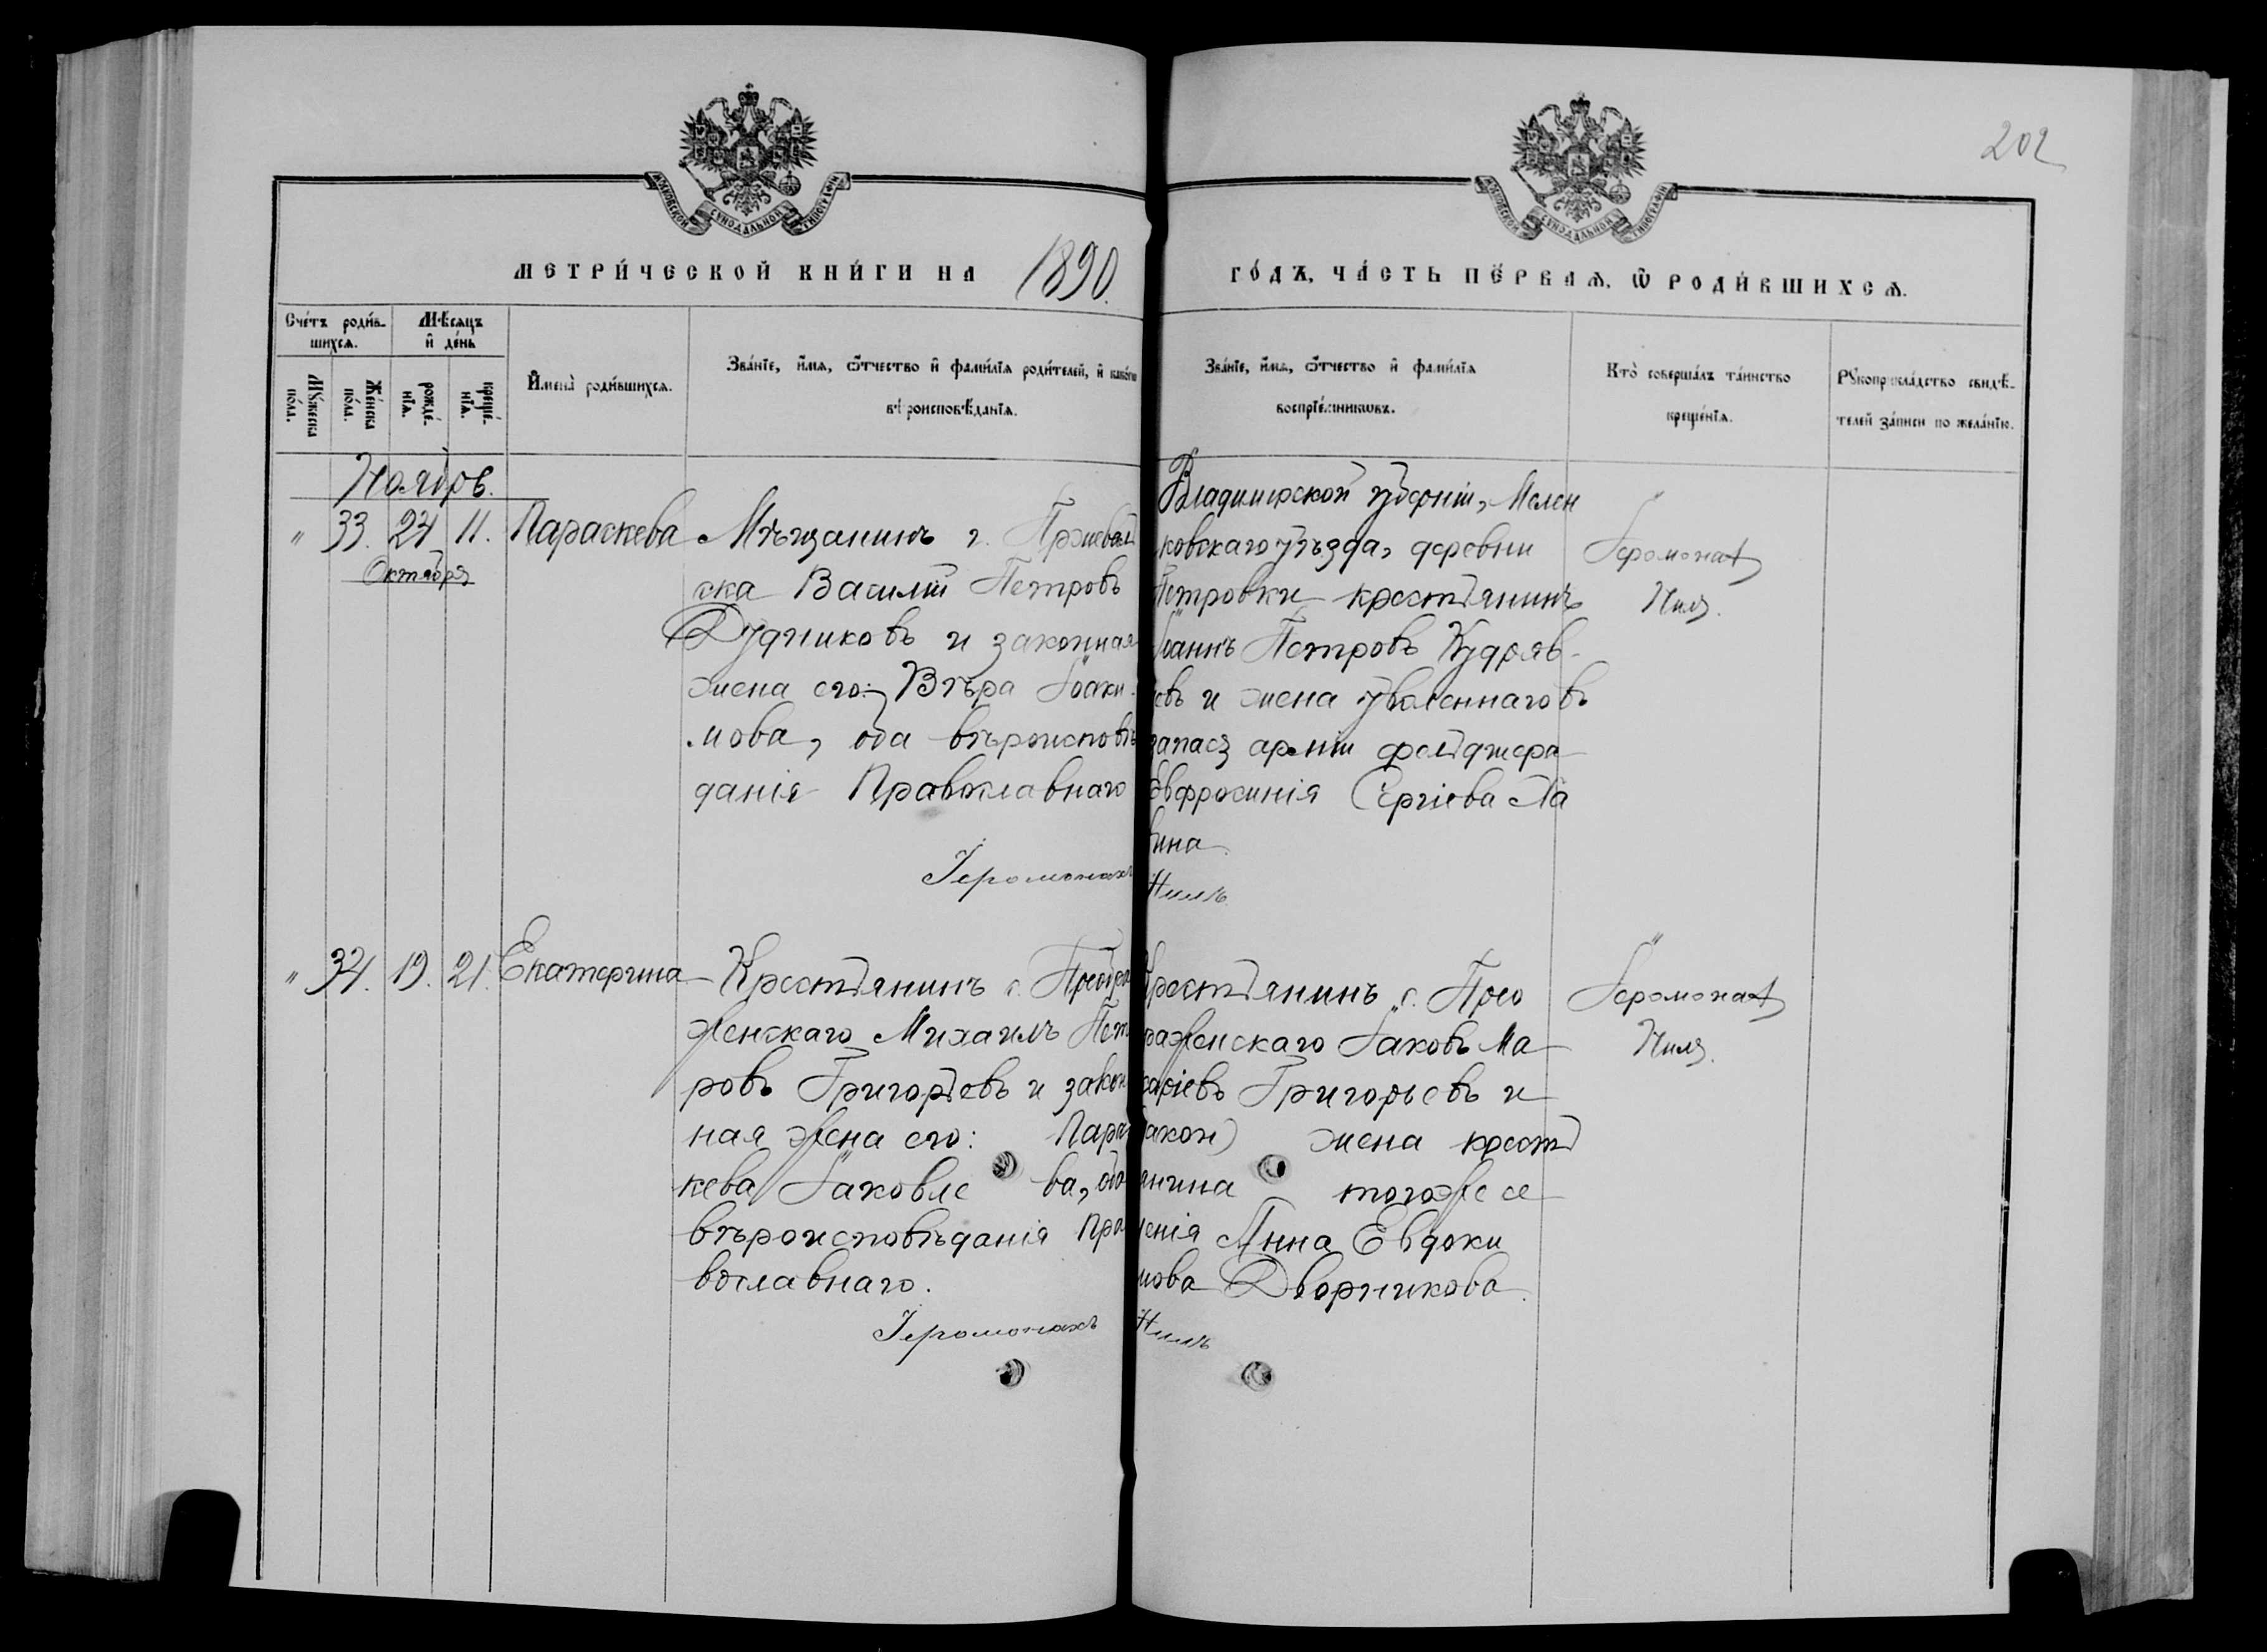 202
МОСКОВСКОЙ СѴНОДАЛЬНОЙ ТИПОГРАФІИ
МОСКОВСКОЙ СѴНОДАЛЬНОЙ ТИПОГРАФІИ
МЕТРИ́ЧЕСКОЙ КНИ́ГИ НА 1890.
ГО́ДЪ, ЧА́СТЬ ПЕ́РВАѦ, Ѡ҆ РОДИ́ВШИХСѦ.
Сче́тъ роди́в-
шихсѧ.
Мѣ́сѧцъ
и҆ де́нь
Мꙋ́жеска
по́ла.
Же́нска
по́ла.
рожде́-
нїѧ.
креще́-
нїѧ.
И҆мена̀ роди́вшихсѧ.
Зва́нїе, и҆́мѧ, ѻ҆́тчество и҆ фами́лїѧ роди́телей, и҆ како́гѡ
вѣроисповѣ́данїѧ.
Зва́нїе, и҆́мѧ, ѻ҆́тчество и҆ фами́лїѧ
воспрїе́мникѡвъ.
Кто̀ соверша́лъ та́инство
креще́нїѧ.
Рꙋкоприкла́дство свидѣ́-
телей за́писи по жела́нїю.
Ноябрь.
" 33. 24 11. Параскева
Октября
Мѣщанинъ г. Пржеваль
ска Василій Петровъ
Дудниковъ и законная
жена его: Вѣра Іоаки-
мова, оба вѣроисповѣ
данія Православнаго
Іеромонахъ Нилъ
Владимирской губерніи, Мелен
ковскаго уѣзда, деревни
Петровки крестьянинъ
Іоаннъ Петровъ Кудряв-
евъ и жена уволеннаго въ
запасъ арміи фельдшера
Евфросинія Сергіева Ла
вина.
Іеромонах
Нилъ.
" 34. 19. 21. Екатерина
Крестьянинъ с. Преобра
женскаго Михаилъ Пет
ровъ Григорьевъ и закон
ная жена его: Парас
кева Іаковлева, оба
вѣроисповѣданія Пра
вославнаго.
Іеромонахъ Нилъ
Крестьянинъ с. Прео
браженскаго Іаковъ Ма
каріевъ Григорьевъ и
закон) жена кресть
янина тогоже се
ленія Анна Евдоки
мова Дворникова.
Іеромонах
Нилъ.